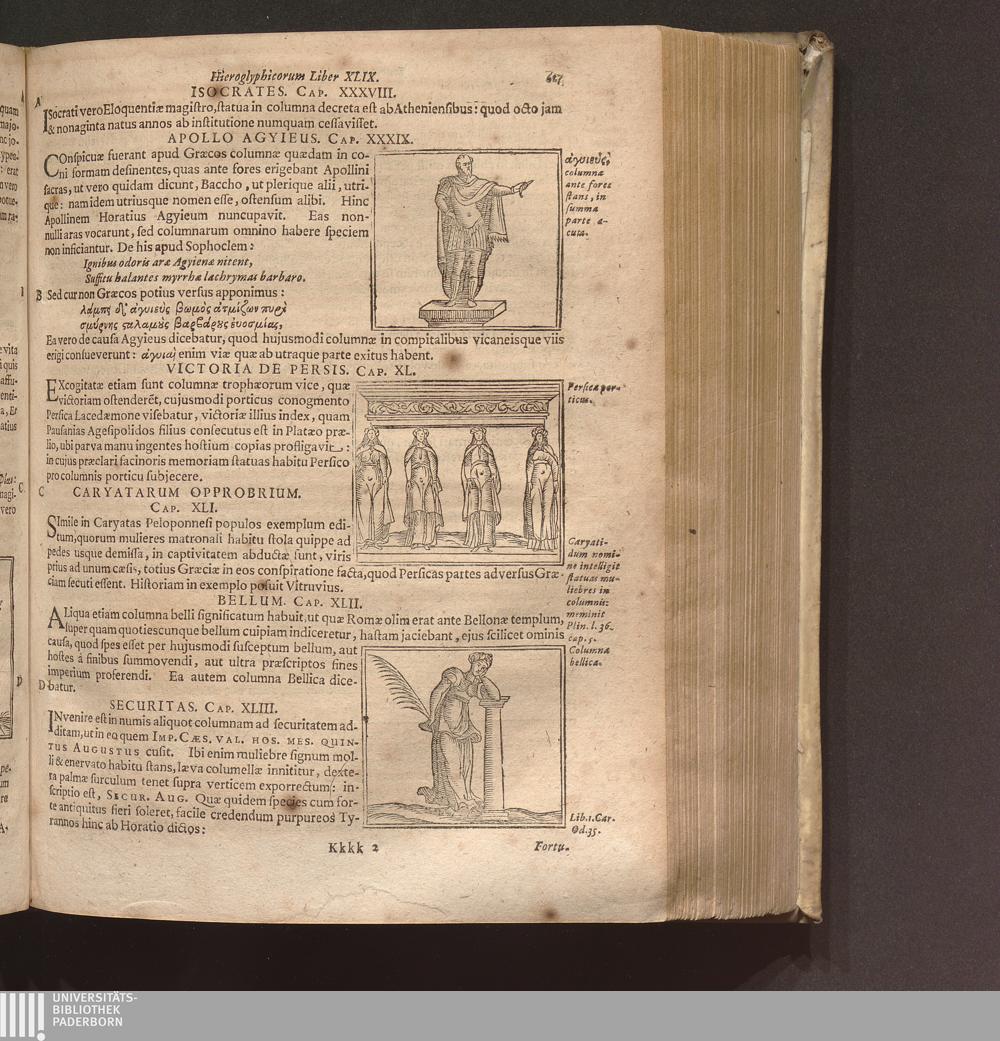 Hieroglyphicorum Liber XLIX.
617
ISOCRATES. CAP. XXXVIII.
A
ISocrati vero Eloquentiæ magiſtro, ſtatua in columna decreta eſt ab Athenienſibus: quod octo jam
& nonaginta natus annos ab inſtitutione numquam ceſſaviſſet.
APOLLO AGYIEUS. CAP. XXXIX.
COnſpicuæ fuerant apud Græcos columnæ quædam in co-
ni formam deſinentes, quas ante fores erigebant Apollini
ſacras, ut vero quidam dicunt, Baccho, ut plerique alii, utri-
que: nam idem utriusque nomen eſſe, oſtenſum alibi. Hinc
Apollinem Horatius Agyieum nuncupavit. Eas non-
nulli aras vocarunt, ſed columnarum omnino habere ſpeciem
non inficiantur. De his apud Sophoclem:
Ignibus odoris aræ Agyienæ nitent,
Suffitu halantes myrrhæ lachrymas barbaro.
B Sed cur non Græcos potius verſus apponimus:
λάμπει δ' ἀγυιεὺς βωμὸς ἀτμίζων πυρὶ
σμύρνης σταλαμοὺς βαρβάρους ἐυοσμίας,
Ea vero de cauſa Agyieus dicebatur, quod hujusmodi columnæ in compitalibus vicaneisque viis
erigi conſueverunt: ἀγυιαὶ enim viæ quæ ab utraque parte exitus habent.
ἀγυιεὺς,
columna
ante fores
ſtans, in
ſumma
parte a-
cuta.
VICTORIA DE PERSIS. CAP. XL.
EXcogitatæ etiam ſunt columnæ trophæorum vice, quæ
victoriam oſtenderẽt, cujusmodi porticus conogmento
Perſica Lacedæmone viſebatur, victoriæ illius index, quam
Pauſanias Ageſipolidos filius conſecutus eſt in Platæo præ-
lio, ubi parva manu ingentes hoſtium copias profligavit:
in cujus præclari facinoris memoriam ſtatuas habitu Perſico
pro columnis porticu ſubjecere.
Perſica por-
ticus.
C CARYATARUM OPPROBRIUM.
CAP. XLI.
SImile in Caryatas Peloponneſi populos exemplum edi-
tum, quorum mulieres matronali habitu ſtola quippe ad
pedes usque demiſſa, in captivitatem abductæ ſunt, viris
prius ad unum cæſis, totius Græciæ in eos conſpiratione facta, quod Perſicas partes adverſus Græ-
ciam ſecuti eſſent. Hiſtoriam in exemplo poſuit Vitruvius.
Caryati-
dum nomi-
ne intelligit
ſtatuas mu-
liebres in
columnis:
meminit
Plin. l. 36.
cap. 5.
BELLUM. CAP. XLII.
ALiqua etiam columna belli ſignificatum habuit, ut quæ Romæ olim erat ante Bellonæ templum,
ſuper quam quotiescunque bellum cuipiam indiceretur, haſtam jaciebant, ejus ſcilicet ominis
cauſa, quod ſpes eſſet per hujusmodi ſuſceptum bellum, aut
hoſtes à finibus ſummovendi, aut ultra præſcriptos fines
imperium proferendi. Ea autem columna Bellica dice-
D batur.
Columna
bellica.
SECURITAS. CAP. XLIII.
INvenire eſt in numis aliquot columnam ad ſecuritatem ad-
ditam, ut in eo quem IMP. CÆS. VAL. HOS. MES. QUIN-
TUS AUGUSTUS cuſit. Ibi enim muliebre ſignum mol-
li & enervato habitu ſtans, læva columellæ innititur, dexte-
ra palmæ ſurculum tenet ſupra verticem exporrectum: in-
ſcriptio eſt, SECUR. AUG. Quæ quidem ſpecies cum for-
te antiquitus fieri ſoleret, facile credendum purpureos Ty-
rannos hinc ab Horatio dictos:
Lib. 1. Car.
Od. 35.
Kkkk 2
Fortu-
UNIVERSITÄTS-
BIBLIOTHEK
PADERBORN